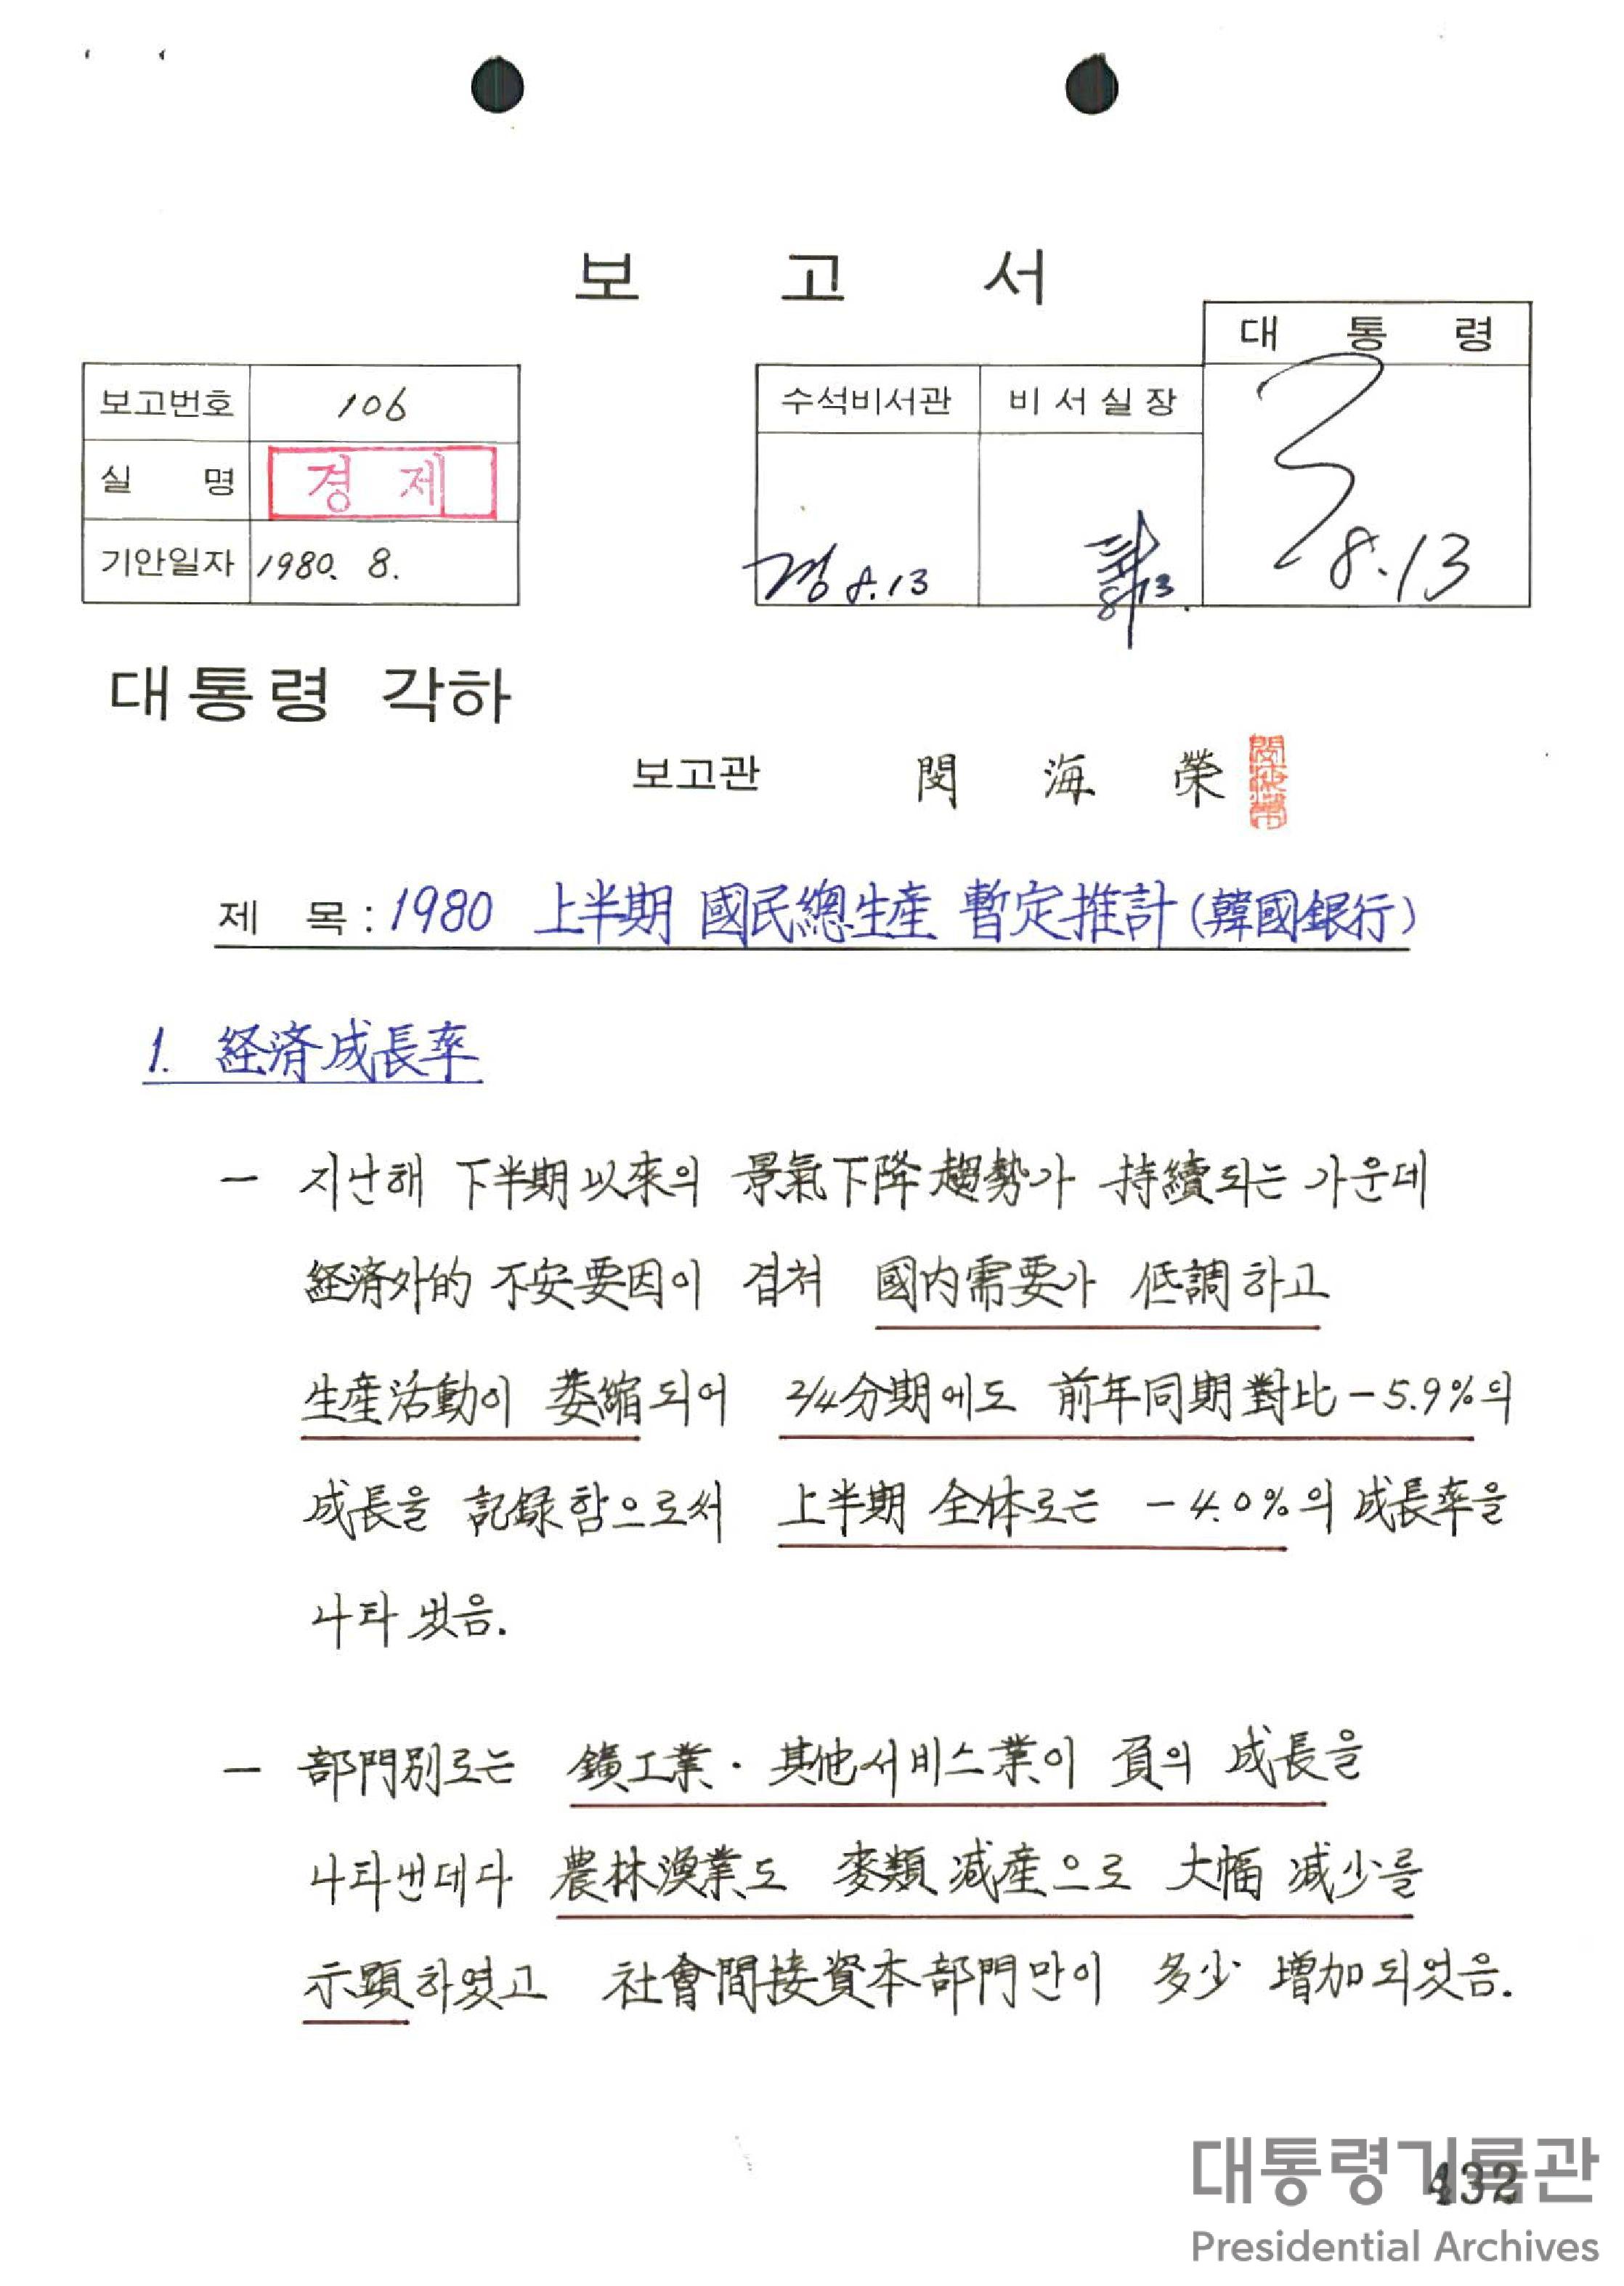 보 고 서
대 통 령
보고번호 106
수석비서관 비서실장
실 명 경 제
기안일자 1980. 8.
8.13
8.13
8.13
대통령 각하
보고관 閔 海 榮
閔海榮
제 목 : 1980 上半期 國民總生産 暫定推計 (韓國銀行)
1. 経済成長率
- 지난해 下半期以來의 景氣下降趨勢가 持續되는 가운데
経済外的 不安要因이 겹쳐 國內需要가 低調하고
生産活動이 萎縮되어 2/4分期에도 前年同期對比 -5.9%의
成長을 記録함으로써 上半期 全体로는 -4.0%의 成長率을
나타냈음.
- 部門別로는 鑛工業·其他서비스業이 負의 成長을
나타낸데다 農林漁業도 麥類減産으로 大幅 減少를
示顕하였고 社會間接資本部門만이 多少 增加되었음.
대통령기록관
432
Presidential Archives